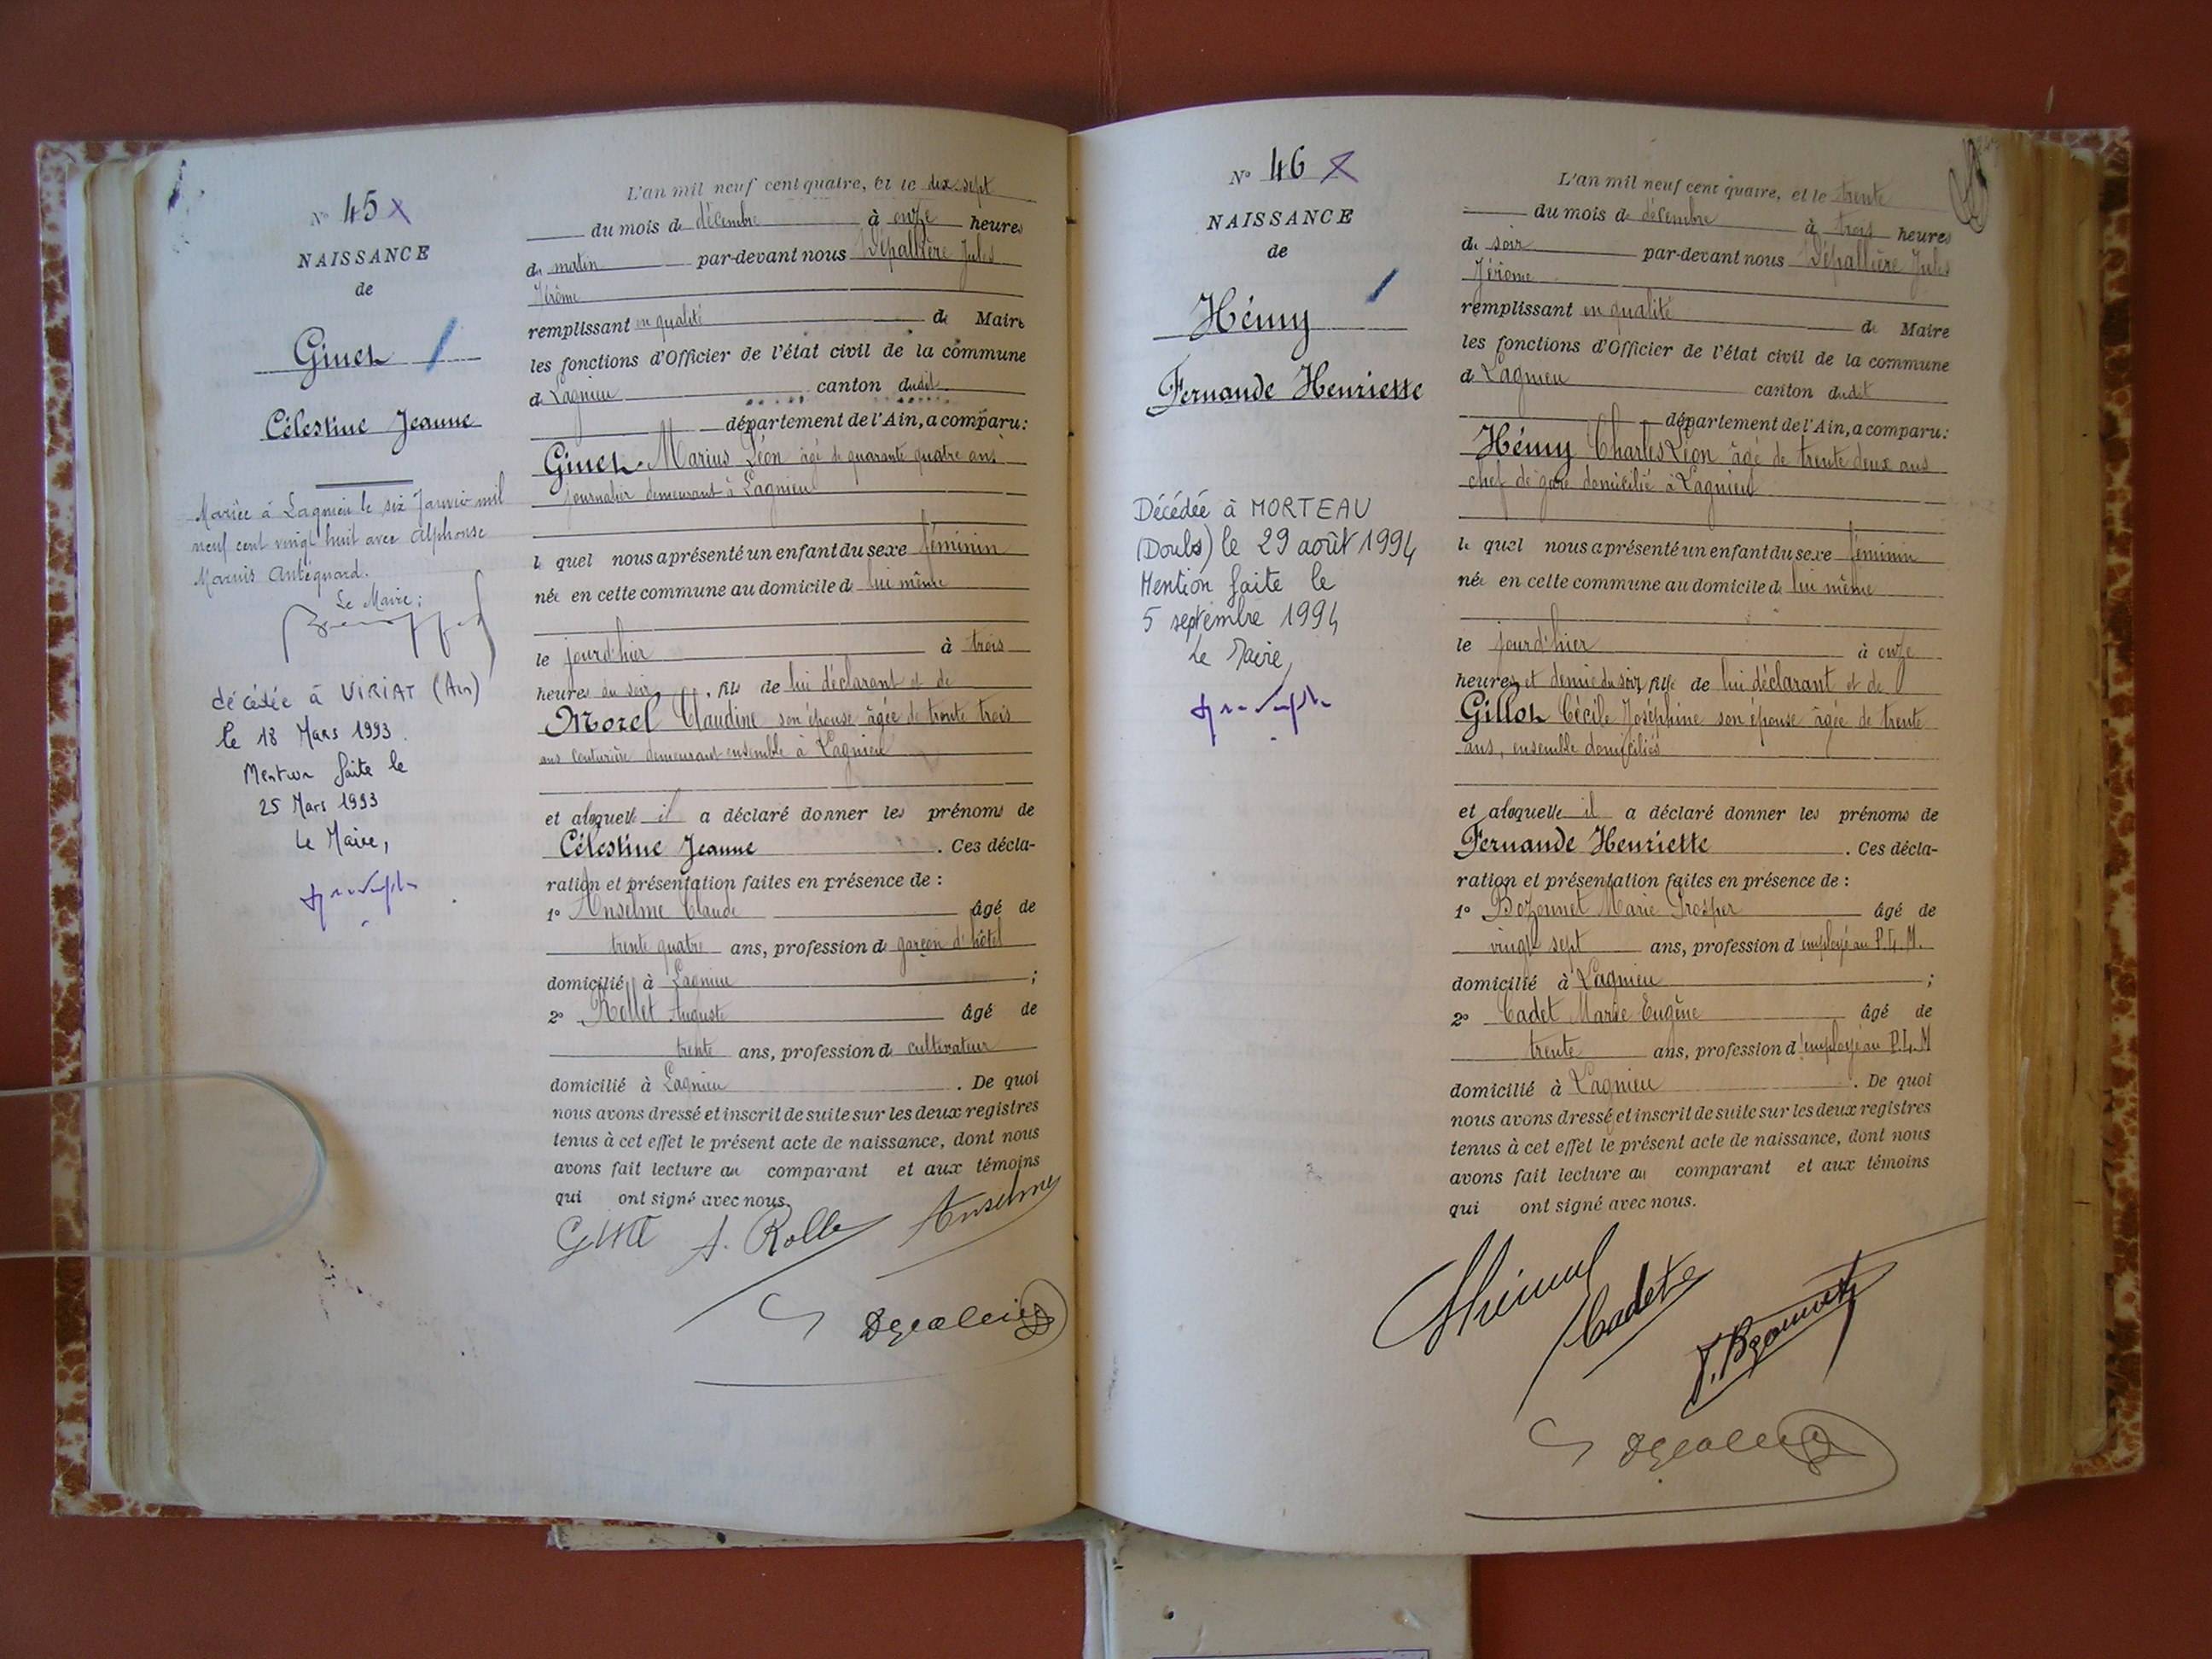 N° 45
NAISSANCE
de
Ginet
Célestine Jeanne
Mariée à Lagnieu le six Janvier mil
neuf cent vingt huit avec Alphonse
Marius Antégnard.
Le Maire :
décédée à VIRIAT (Ain)
le 18 Mars 1993.
Mention faite le
25 Mars 1993
Le Maire,
L'an mil neuf cent quatre, et le dix-sept
du mois de décembre à onze heures
du matin par-devant nous Dépallière Jules
Jérôme
remplissant en qualité de Maire
les fonctions d'Officier de l'état civil de la commune
de Lagnieu canton dudit
département de l'Ain, a comparu :
Ginet Marius Léon âgé de quarante quatre ans
journalier demeurant à Lagnieu
lequel nous a présenté un enfant du sexe féminin
née en cette commune au domicile de lui même
le jourd'hier à trois
heures du soir, fils de lui déclarant et de
Morel Claudine son épouse âgée de trente trois
ans couturière demeurant ensemble à Lagnieu
et a laquelle il a déclaré donner les prénoms de
Célestine Jeanne. Ces décla-
ration et présentation faites en présence de :
1° Anselme Claude âgé de
trente quatre ans, profession de garçon d'hôtel
domicilié à Lagnieu ;
2° Rollet Auguste âgé de
trente ans, profession de cultivateur
domicilié à Lagnieu. De quoi
nous avons dressé et inscrit de suite sur les deux registres
tenus à cet effet le présent acte de naissance, dont nous
avons fait lecture au comparant et aux témoins
qui ont signé avec nous.
A. Rolle Anselme
N° 46
NAISSANCE
de
Hémy
Fernande Henriette
Décédée à MORTEAU
(Doubs) le 29 août 1994
Mention faite le
5 septembre 1994
Le Maire,
L'an mil neuf cent quatre, et le trente
du mois de décembre à trois heures
du soir par-devant nous Dépallière Jules
Jérôme
remplissant en qualité de Maire
les fonctions d'Officier de l'état civil de la commune
de Lagnieu canton dudit
département de l'Ain, a comparu :
Hémy Charles Léon âgé de trente deux ans
chef de gare domicilié à Lagnieu
lequel nous a présenté un enfant du sexe féminin
née en cette commune au domicile de lui même
le jourd'hier à onze
heures et demie du soir, fille de lui déclarant et de
Gillot Cécile Joséphine son épouse âgée de trente
ans, ensemble domiciliés
et a laquelle il a déclaré donner les prénoms de
Fernande Henriette. Ces décla-
ration et présentation faites en présence de :
1° Bozonnet Marie Prosper âgé de
vingt sept ans, profession d'employé au P.L.M.
domicilié à Lagnieu ;
2° Cadet Marie Eugène âgé de
trente ans, profession d'employé au P.L.M
domicilié à Lagnieu. De quoi
nous avons dressé et inscrit de suite sur les deux registres
tenus à cet effet le présent acte de naissance, dont nous
avons fait lecture au comparant et aux témoins
qui ont signé avec nous.
Cadet